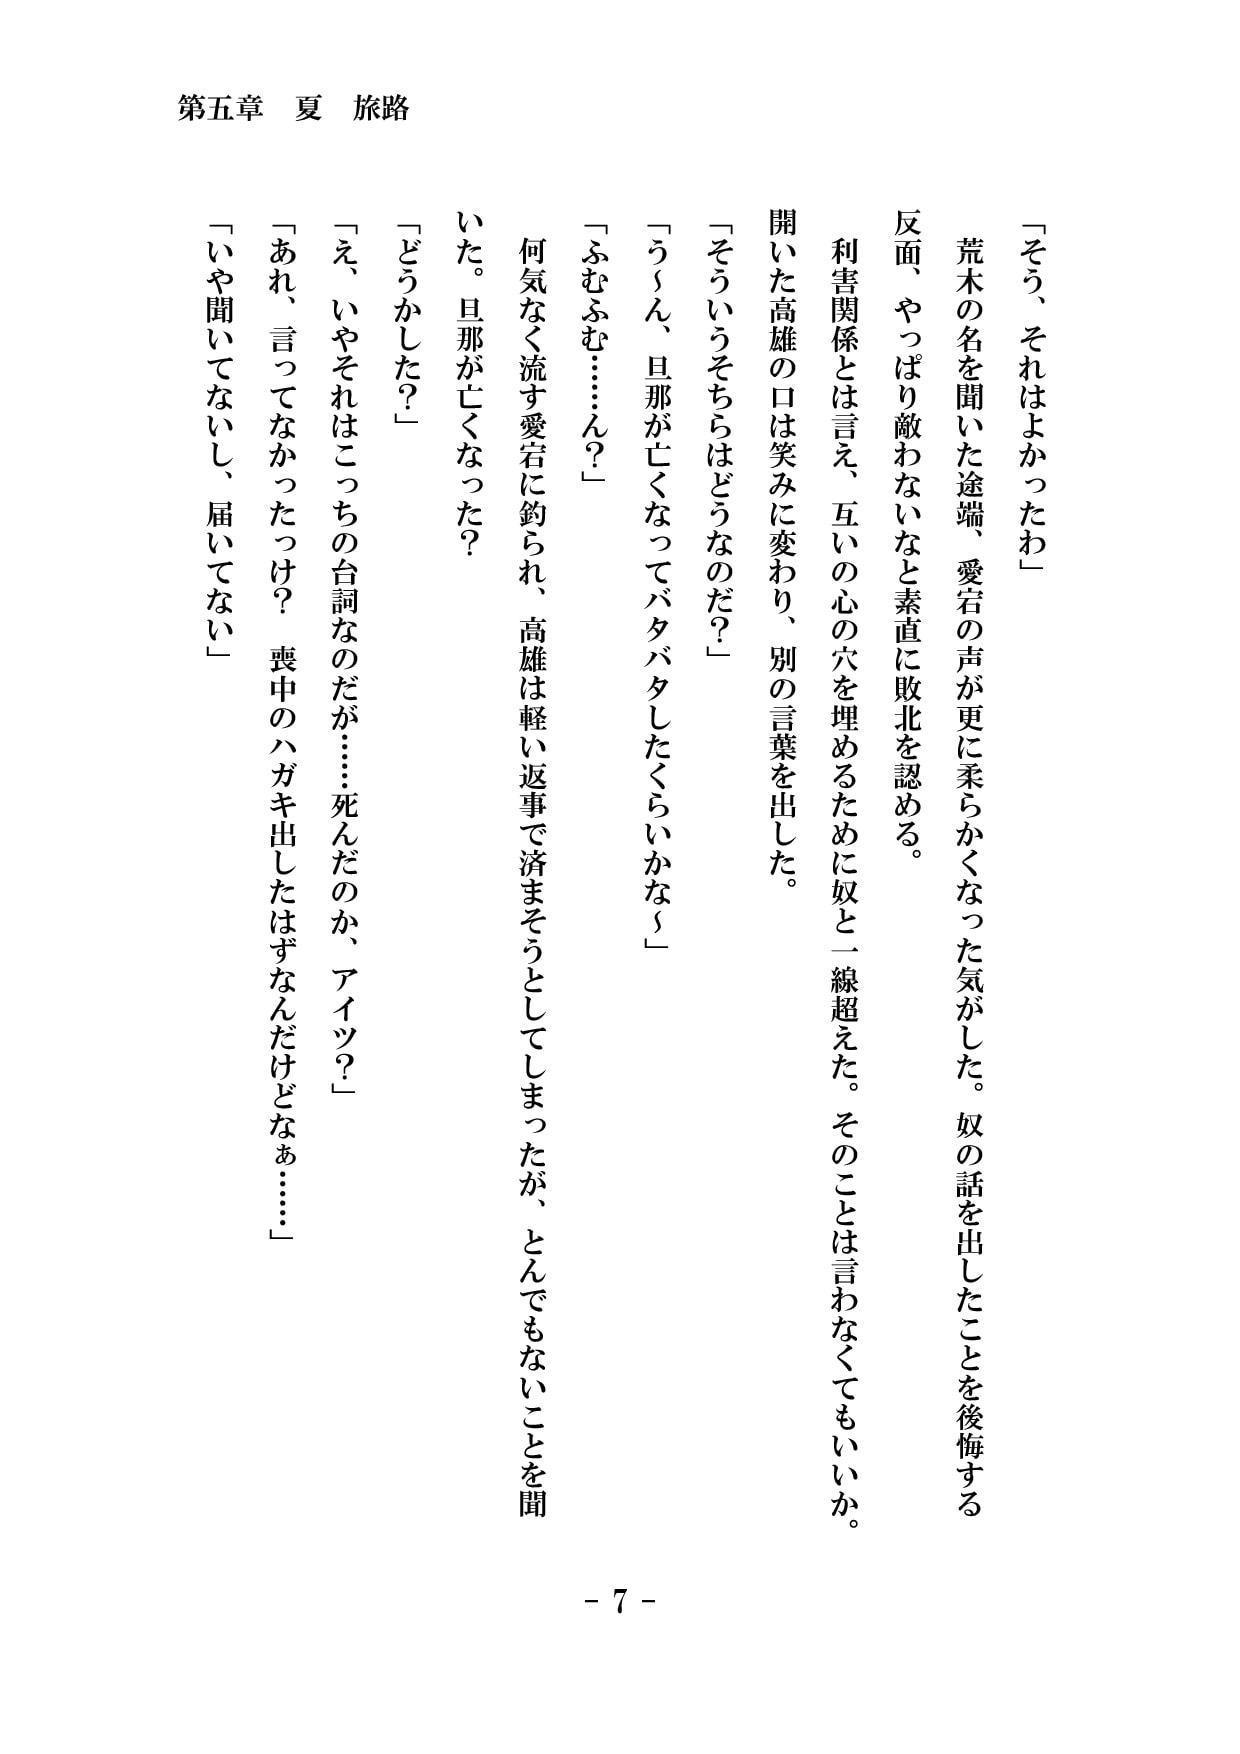 第五章　夏　旅路
「そう、それはよかったわ」
　荒木の名を聞いた途端、愛宕の声が更に柔らかくなった気がした。奴の話を出したことを後悔する
反面、やっぱり敵わないなと素直に敗北を認める。
　利害関係とは言え、互いの心の穴を埋めるために奴と一線超えた。そのことは言わなくてもいいか。
開いた高雄の口は笑みに変わり、別の言葉を出した。
「そういうそちらはどうなのだ？」
「う～ん、旦那が亡くなってバタバタしたくらいかな～」
「ふむふむ……ん？」
　何気なく流す愛宕に釣られ、高雄は軽い返事で済まそうとしてしまったが、とんでもないことを聞
いた。旦那が亡くなった？
「どうかした？」
「え、いやそれはこっちの台詞なのだが……死んだのか、アイツ？」
「あれ、言ってなかったっけ？　喪中のハガキ出したはずなんだけどなぁ……」
「いや聞いてないし、届いてない」
- 7 -